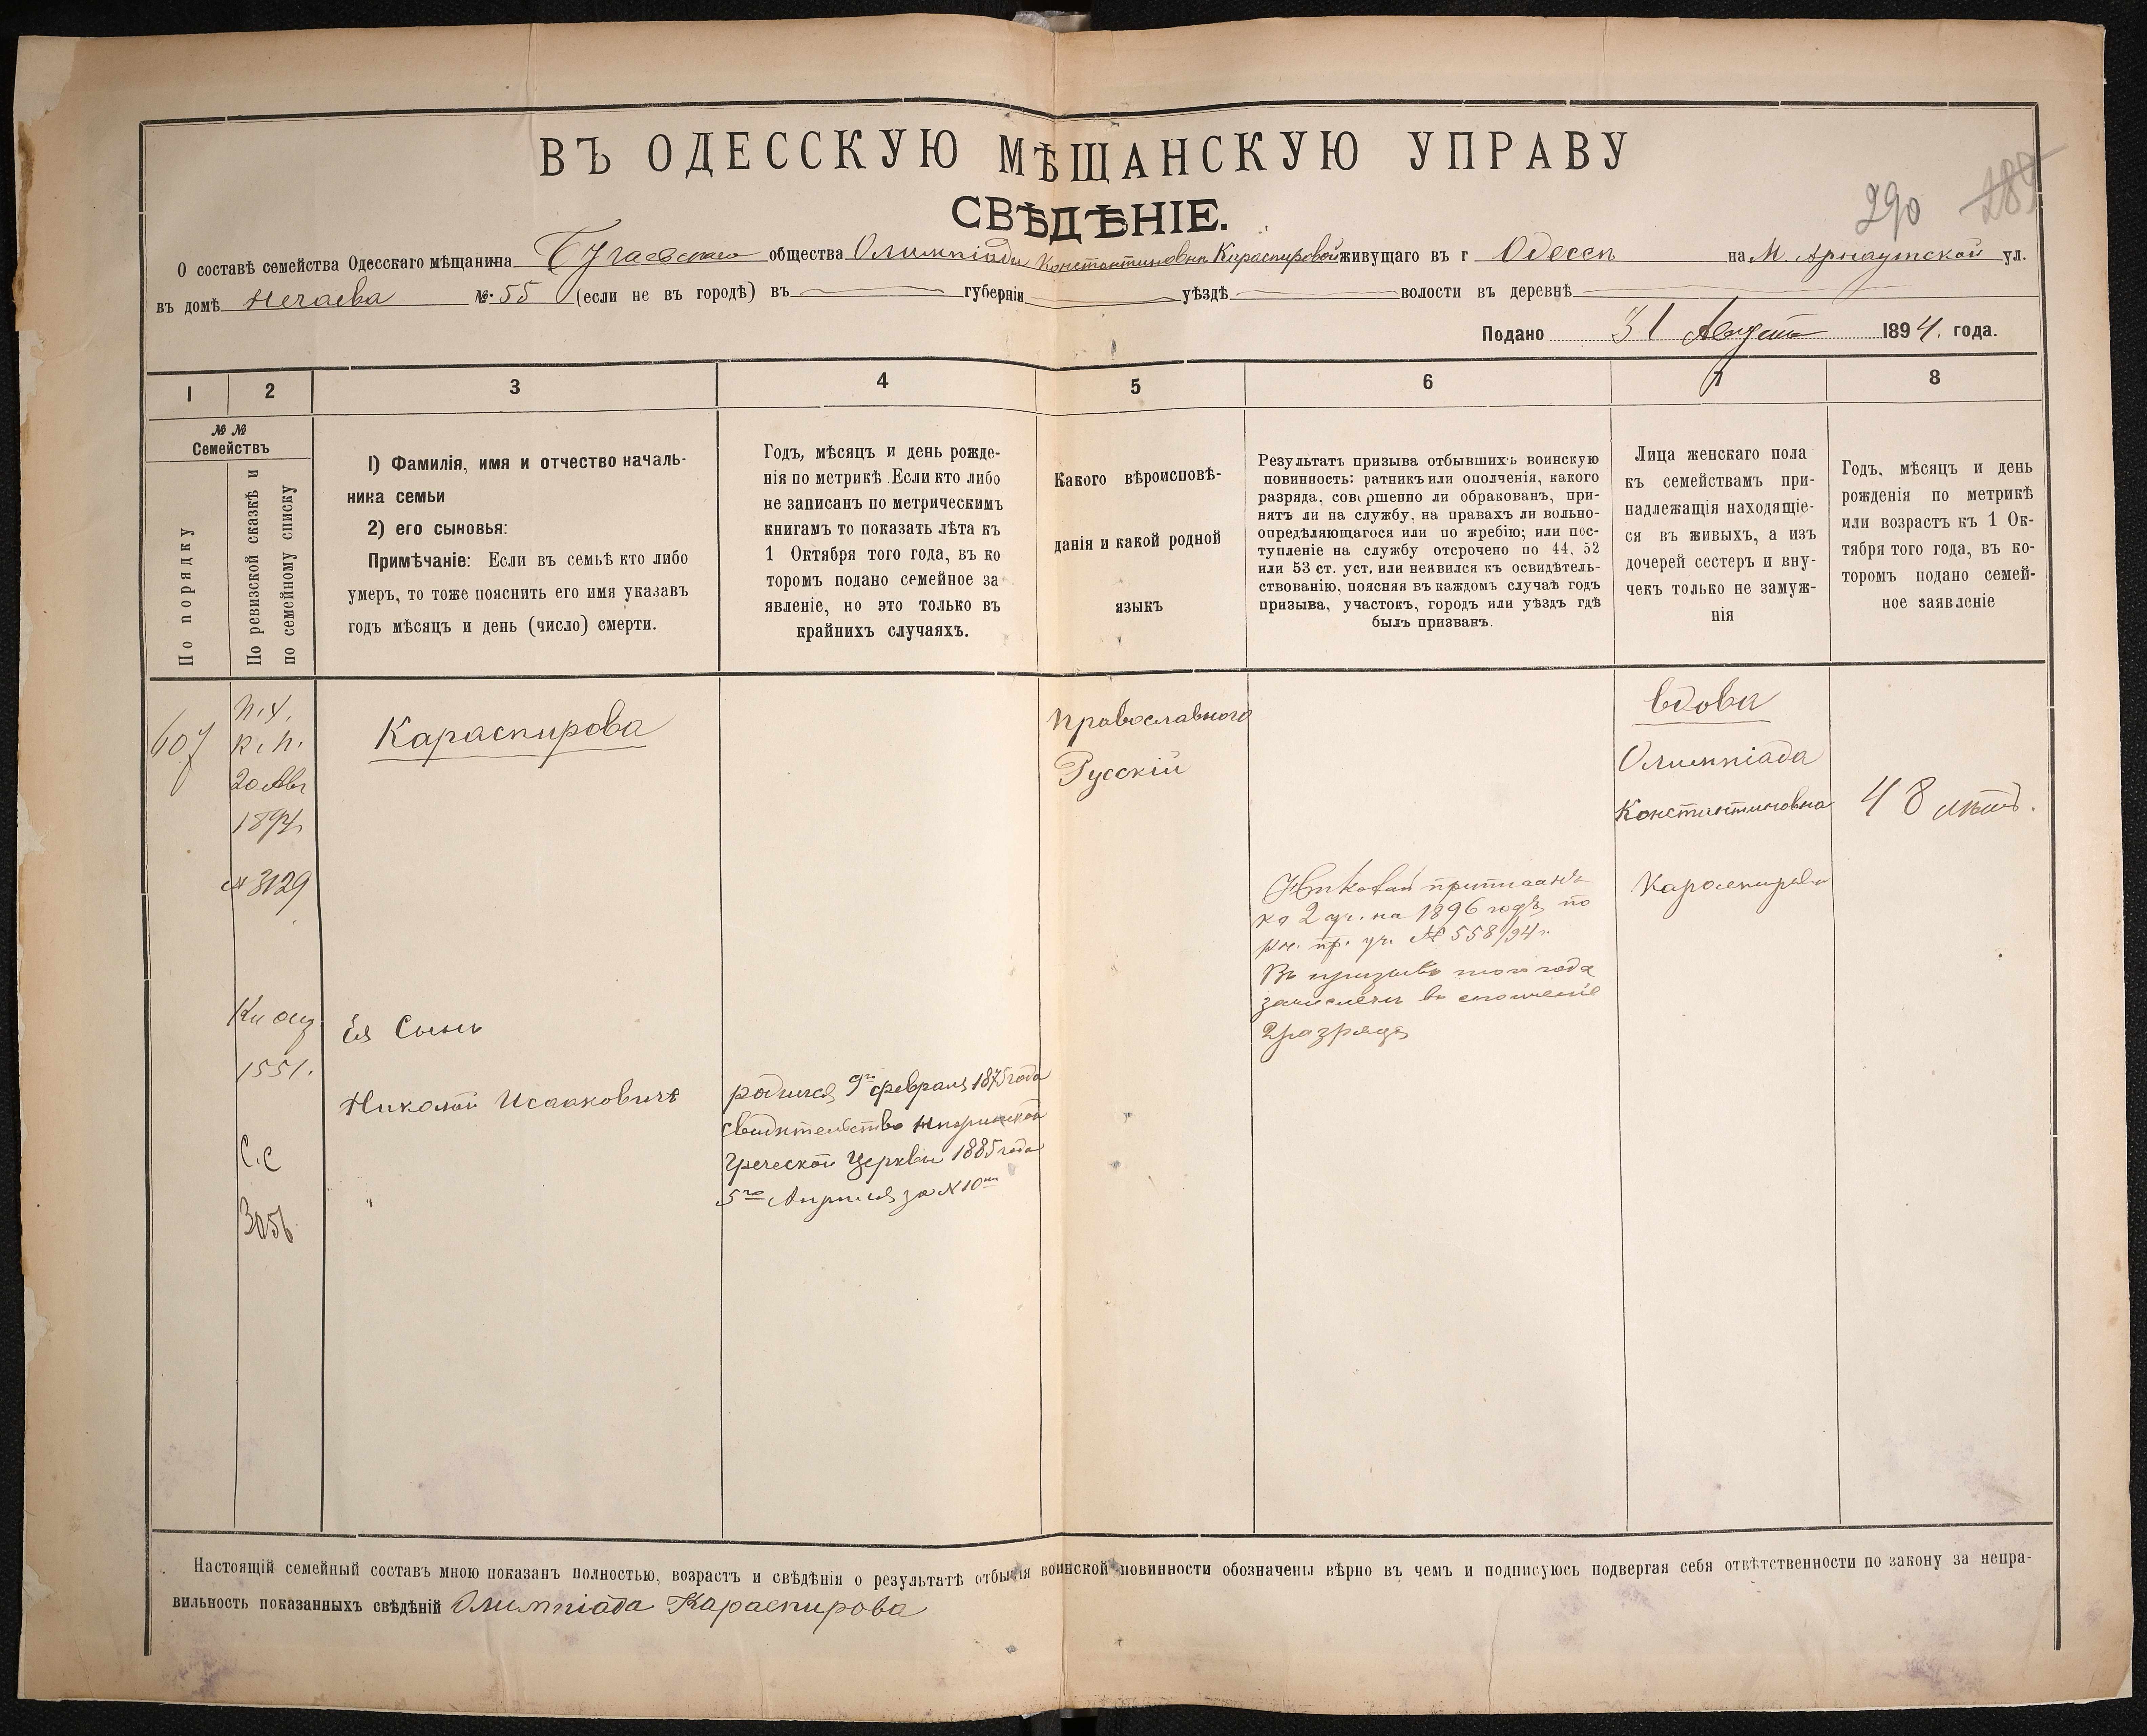 ВЪ ОДЕССКУЮ МѢЩАНСКУЮ УПРАВУ
СВѢДѢНІЕ.
290 289
О составѣ семейства Одесскаго мѣщанина Бугаевскаго общества Олимпіады Константиновны Караспировой живущаго въ г Одессѣ на М. Арнаутской ул.
въ домѣ Нечаева №. 55 (если не въ городѣ) въ губерніи уѣздѣ волости въ деревнѣ
Подано 31 Августа 1894. года.
1 2 3 4 5 6 7 8
№ №
Семействъ
По порядку
По ревизской сказкѣ и
по семейному списку
1) Фамилія, имя и отчество началь-
ника семьи
2) его сыновья:
Примѣчаніе: Если въ семьѣ кто либо
умеръ, то тоже пояснить его имя указавъ
годъ мѣсяцъ и день (число) смерти.
Годъ, мѣсяцъ и день рожде-
нія по метрикѣ. Если кто либо
не записанъ по метрическимъ
книгамъ то показать лѣта къ
1 Октября того года, въ ко
торомъ подано семейное за
явленіе, но это только въ
крайнихъ случаяхъ.
Какого вѣроисповѣ-
данія и какой родной
языкъ
Результатъ призыва отбывшихъ воинскую
повинность: ратникъ или ополченія, какого
разряда, совершенно ли обракованъ, при-
нятъ ли на службу, на правахъ ли вольно-
опредѣляющагося или по жребію; или пос-
тупленіе на службу отсрочено по 44, 52
или 53 ст. уст, или неявился къ освидѣтель-
ствованію, поясняя въ каждомъ случаѣ годъ
призыва, участокъ, городъ или уѣздъ гдѣ
былъ призванъ.
Лица женскаго пола
къ семействамъ при-
надлежащія находящіе-
ся въ живыхъ, а изъ
дочерей сестеръ и вну-
чекъ только не замуж-
нія
Годъ, мѣсяцъ и день
рожденія по метрикѣ
или возрастъ къ 1 Ок-
тября того года, въ ко-
торомъ подано семей-
ное заявленіе
607
20 Авг
1894
№ 3129
1551.
С.С
3056
Караспирова
Ея Сынъ
Николай Исааковичъ
родился 9го февраля 1875 года
свидѣтельство
Греческой Церкви 1885 года
5го Апрѣля за № 10мъ
Православнаго
Русскій
Николай приписанъ
ко 2 уч. на 1896 годъ по
кн. пр. уч. № 558/94 г.
Въ призывъ того года
зачисленъ въ ополченіе
2 разряда
Вдова
Олимпіада
Константиновна
Караспирова
48 лѣтъ.
Настоящій семейный составъ мною показанъ полностью, возрастъ и свѣдѣнія о результатѣ отбытія воинской повинности обозначены вѣрно въ чемъ и подписуюсь подвергая себя отвѣтственности по закону за непра-
вильность показанныхъ свѣдѣній Олимпіада Караспирова